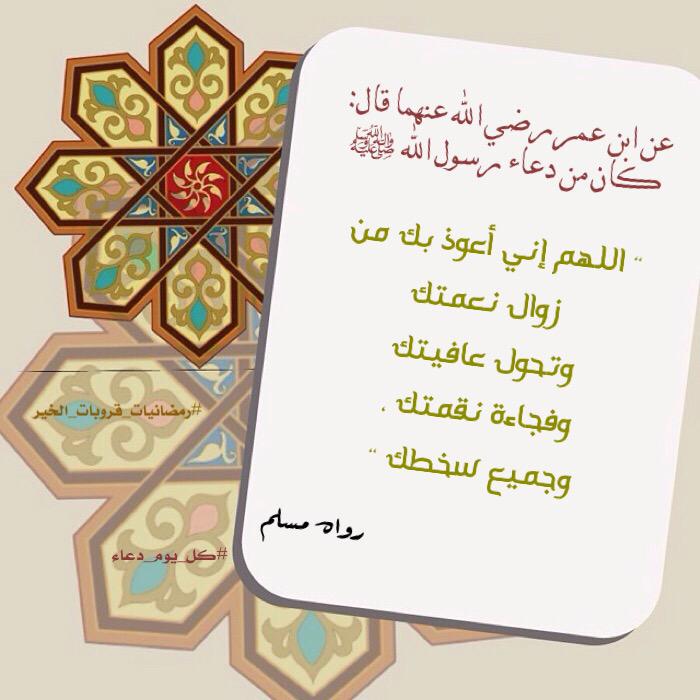 عن ابن عمر رضي الله عنهما قال:
كان من دعاء رسول الله ﷺ
" اللهم إني أعوذ بك من
زوال نعمتك
وتحول عافيتك
وفجاءة نقمتك ،
وجميع سخطك "
رواه مسلم
#رمضانيات_قروبات_الخير
#كل_يوم_دعاء